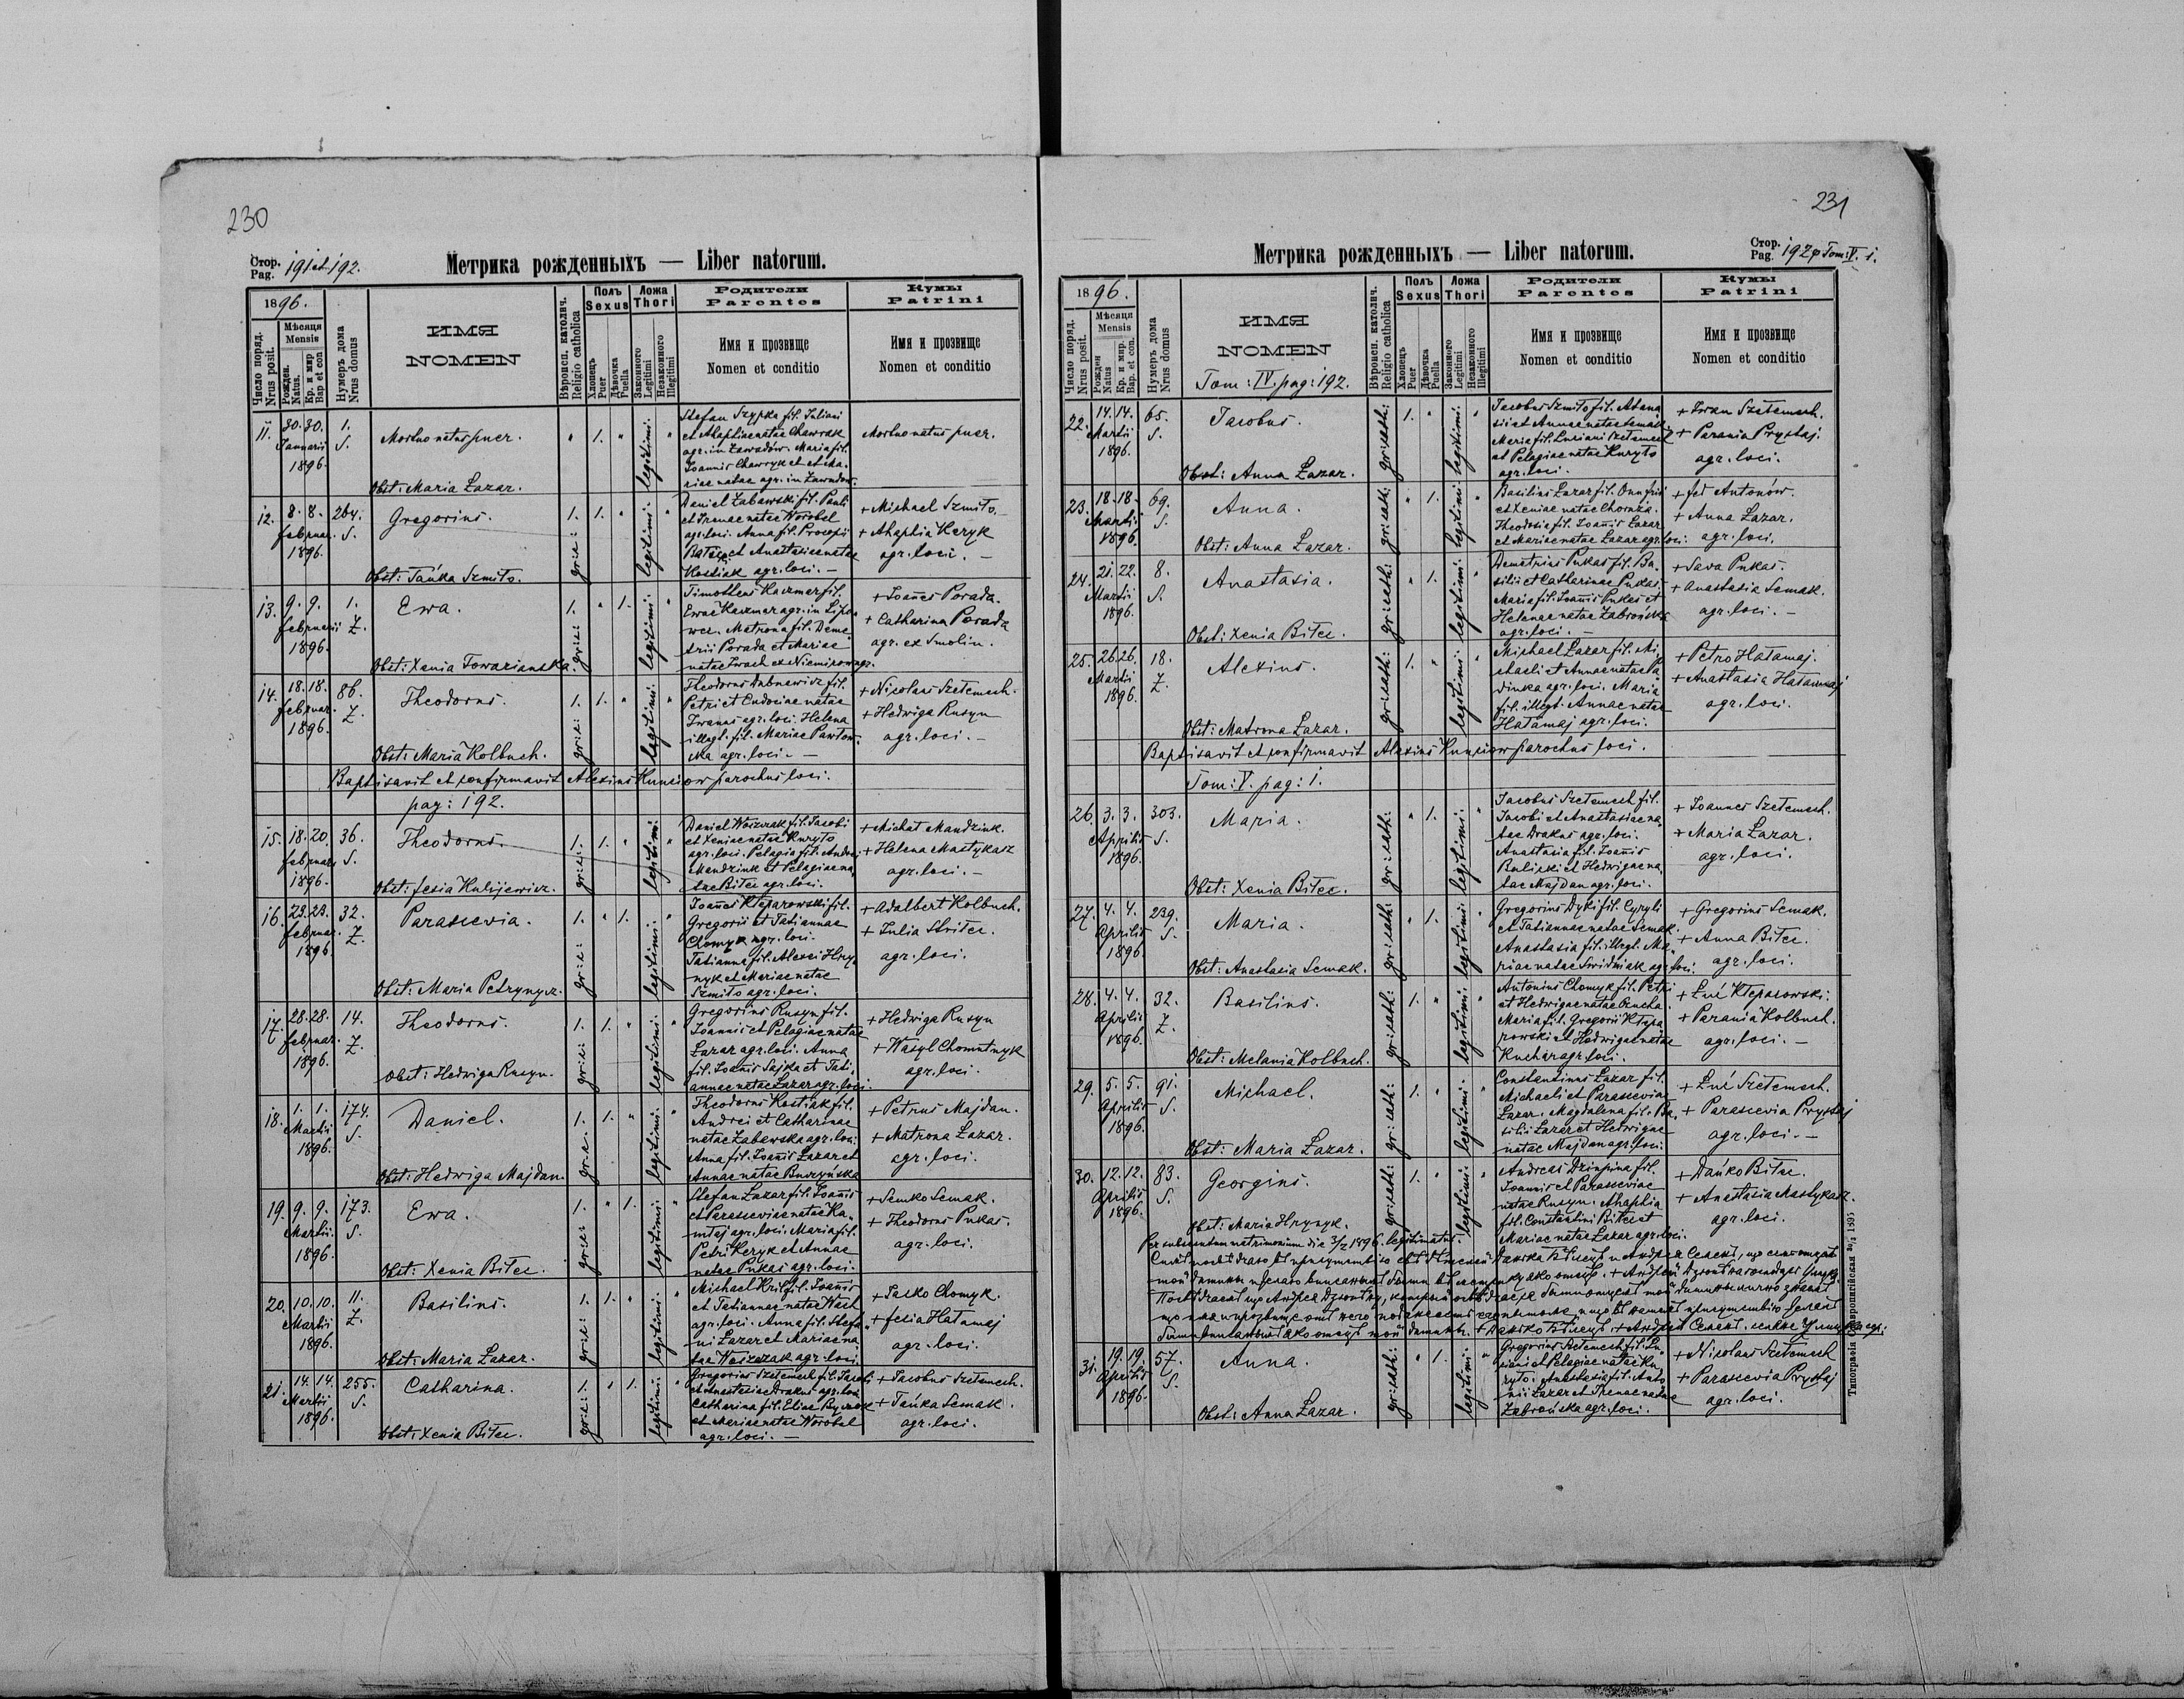 230
Стор. Pag. 191 et 192.
Метрика рожденныхъ — Liber natorum.
1896.
Число поряд. Nrus posit.
Мѣсяця Mensis
Рожден. Natus.
Кр. и мѵр Bap et con
Нумеръ дома Nrus domus
ИМЯ
NOMEN
Вѣроисп. католич. Religio catholica
Полъ Sexus
Хлопецъ Puer
Дѣвочка Puella
Ложа Thori
Законного Legitimi
Незаконного Illegitimi
Родители
Parentes
Имя и прозвище
Nomen et conditio
Кумы
Patrini
Имя и прозвище
Nomen et conditio
11. 30. 30. Januarii 1896. 1. S.
Mortuo natus puer.
" 1. " legitimi. "
Stefan Szypka fil. Juliani
et Ahaphiae natae Chawrak
agr. in Zawadów. Maria fil.
Joannis et Ma-
riae natae agr. in Zawadów.
Mortuo natus puer.
Obst: Maria Łazar.
12. 8. 8. februar. 1896. 264. S.
Gregorius.
gr: c: 1. 1. " legitimi. "
Daniel Zabawski fil. Pauli
et Irenae natae Worobel
agr. loci. Anna fil. Procopii
et Anastasiae natae
Kostiak agr. loci. —
+ Michael Szmiło
+ Ahaphia Keryk
agr. loci. —
Obst: Tańka Szmiło.
13. 9. 9. februarii 1896. 1. Z.
Ewa.
gr: c: 1. " 1. legitimi. "
Timotheus Kaczmar fil.
Ewae Kaczmar agr. in Lipo-
wce. Matrona fil. Deme-
trii Porada et Mariae
natae ex Niemirow agr.
+ Joanes Porada.
+ Catharina Porada
agr. ex Smolin.
Obst: Xenia Towarianska.
14. 18. 18. februar. 1896. 86. Z.
Theodorus.
gr: c: 1. 1. " legitimi. "
Theodorus Dubniewicz fil.
Petri et Eudociae natae
Iwanas agr. loci. Helena
illegt. fil. Mariae Pawłow-
ska agr. loci. —
+ Nicolaus Szełemech.
+ Hedwiga Rusyn
agr. loci. —
Obst: Maria Kolbuch.
Baptisavit et confirmavit Alexius Kunciow parochus loci.
pag: 192.
15. 18. 20. februar. 1896. 36. S.
Theodorus.
gr: c: 1. 1. " legitimi. "
Daniel Woszczak fil. Jacobi
et Xeniae natae Kuryło
agr. loci. Pelagia fil. Andrei
Mandziuk et Pelagiae na-
tae Biłec agr. loci.
+ Michał Mandziuk.
+ Helena Mastykasz
agr. loci. —
Obst: fesia Kulijewicz.
16. 23. 23. februar. 1896. 32. Z.
Parascevia.
gr: c: 1. " 1. legitimi. "
Joanes Kłeparowski fil.
Gregorii et Tatiannae
Chomyk agr. loci.
Tatianna fil. Alexei Hry-
nyk et Mariae natae
Szmiło agr. loci.
+ Adalbert Kolbuch.
+ Julia Striłec.
agr. loci.
Obst: Maria Petrynycz.
17. 28. 28. februar. 1896. 14. Z.
Theodorus.
gr: c: 1. 1. " legitimi. "
Gregorius Rusyn fil.
Joannis et Pelagiae natae
Łazar agr. loci. Anna
fil. Joanis Sajka et Tati-
annae natae Łazar agr. loci.
+ Hedwiga Rusyn
+ Wasyl Chomutnyk
agr. loci.
Obst: Hedwiga Rusyn.
18. 1. 1. Martii 1896. 174. S.
Daniel.
gr: c: 1. 1. " legitimi. "
Theodorus Kostiak fil.
Andrei et Catharinae
natae Zabawska agr. loci
Anna fil. Joanis Łazar et
Annae natae Buczyńska
+ Petrus Majdan.
+ Matrona Łazar.
agr. loci.
Obst: Hedwiga Majdan.
19. 9. 9. Martii 1896. 173. S.
Ewa.
gr: c: 1. " 1. legitimi. "
Stefan Łazar fil. Joanis
et Parasceviae natae Ha-
łamaj agr. loci. Maria fil.
Petri Keryk et Annae
natae Pukas agr. loci.
+ Semko Semak.
+ Theodorus Pukas.
agr. loci.
Obst: Xenia Biłec.
20. 10. 10. Martii 1896. 11. Z.
Basilius.
gr: c: 1. 1. " legitimi. "
Michael Kril fil. Joanis
et Tatiannae natae Wach
agr. loci. Anna fil. Stefa-
ni Łazar et Mariae na-
tae Woszczak agr. loci
+ Jacko Chomyk.
+ fesia Hałamaj
agr. loci.
Obst: Maria Łazar.
21. 14. 14. Martii 1896. 255. S.
Catharina.
gr: c: 1. " 1. legitimi. "
Gregorius Szełemech fil. Jacobi
et Anastasiae Drakus agr. loci.
Catharina fil. Eliae Byczok
et Mariae natae Worobel
agr. loci. —
+ Jacobus Szełemech.
+ Tańka Semak.
agr. loci.
Obst: Xenia Biłec.
231
Стор. Pag. 192 & Tom: V. 1.
Метрика рожденныхъ — Liber natorum.
1896.
Число поряд. Nrus posit.
Мѣсяця Mensis
Рожден Natus
Кр. и мѵр. Bap. et con.
Нумеръ дома Nrus domus
ИМЯ
NOMEN
Tom: IV. pag: 192.
Вѣроисп. католич. Religio catholica
Полъ Sexus
Хлопецъ Puer
Дѣвочка Puella
Ложа Thori
Законного Legitimi
Незаконного Illegitimi
Родители
Parentes
Имя и прозвище
Nomen et conditio
Кумы
Patrini
Имя и прозвище
Nomen et conditio
22. 14. 14. Martii 1896. 65. S.
Jacobus.
gr: cath: 1. " legitimi. "
Jacobus Szmiło fil. Atana-
sii et Annae natae Semak.
Maria fil. Luciani Szełemech
et Pelagiae natae Kuryło
agr. loci.
+ Iwan Szełemech.
+ Parania Prystaj.
agr. loci.
Obst: Anna Łazar.
23. 18. 18. Martii 1896. 69. S.
Anna.
gr: cath: " 1. legitimi. "
Basilius Łazar fil. Onufrii
et Xeniae natae Chomza.
Theodosia fil. Joanis Łazar
et Mariae natae Łazar agr. loci.
+ feś Antonów.
+ Anna Łazar.
agr. loci.
Obst: Anna Łazar.
24. 21. 22. Martii 1896. 8. S.
Anastasia.
gr: cath: " 1. legitimi. "
Demetrius Pukas fil. Ba-
silii et Catharinae Pukas.
Maria fil. Joanis Pukas et
Helenae natae Zabrońska
agr. loci. —
+ Sava Pukas.
+ Anastasia Semak.
agr. loci. —
Obst: Xenia Biłec.
25. 26. 26. Martii 1896. 18. Z.
Alexius.
gr: cath: 1. " legitimi. "
Michael Łazar fil. Mi-
chaeli et Annae natae
agr. loci. Maria
fil. illegt. Annae natae
Hałamaj agr. loci.
+ Petro Hałamaj.
+ Anastasia Hałamaj
agr. loci.
Obst: Matrona Łazar.
Baptisavit et confirmavit Alexius Kunciow parochus loci.
Tom: V. pag: 1.
26. 3. 3. Aprilis 1896. 303. S.
Maria.
gr: cath: " 1. legitimi. "
Jacobus Szełemech fil.
Jacobi et Anastasiae na-
tae Drakus agr. loci.
Anastasia fil. Joanis
Bulicki et Hedwigae na-
tae Majdan agr. loci.
+ Joannes Szełemech.
+ Maria Łazar.
agr. loci.
Obst: Xenia Biłec.
27. 4. 4. Aprilis 1896. 239. S.
Maria.
gr: cath: " 1. legitimi. "
Gregorius Dyki fil. Cyryli
et Tatiannae natae Semak.
Anastasia fil. illegt. Ma-
riae natae Swidniak agr. loci.
+ Gregorius Semak.
+ Anna Biłec.
agr. loci.
Obst: Anastasia Semak.
28. 4. 4. Aprilis 1896. 32. Z.
Basilius.
gr: cath: 1. " legitimi. "
Antonius Chomyk fil. Petri
et Hedwigae natae
Maria fil. Gregorii Kłepa-
rowski et Hedwigae natae
Kuchar agr. loci.
+ Luć Kłeparowski.
+ Parania Kolbuch.
agr. loci. —
Obst: Melania Kolbuch.
29. 5. 5. Aprilis 1896. 91. S.
Michael.
gr: cath: 1. " legitimi. "
Constantinus Łazar fil.
Michaeli et Parascevia
Łazar. Magdalena fil. Ba-
silii Łazar et Hedwigae
natae Majdan agr. loci.
+ Luć Szełemech.
+ Parascevia Prystaj
agr. loci. —
Obst: Maria Łazar.
30. 12. 12. Aprilis 1896. 83. S.
Georgius.
gr: cath: 1. " legitimi. "
Andreas Dziupina fil.
Joannis et Parasceviae
natae Rusyn. Ahaphia
fil. Constantini Biłec et
Mariae natae Łazar agr. loci.
+ Dańko Biłec.
+ Anastasia Mastykasz.
agr. loci.
Obst: Maria Hrynyk.
Per subsequum matrimonium die 3/12 1896. legitimatus.
31. 19. 19. Aprilis 1896. 57. S.
Anna.
gr: cath: " 1. legitimi. "
Gregorius Szełemech fil. Lu-
ciani et Pelagiae natae Ku-
ryło. Anastasia fil. Anto-
nii Łazar et Irenae natae
Zabrońska agr. loci.
+ Nicolaus Szełemech
+ Parascevia Prystaj
agr. loci.
Obst: Anna Łazar.